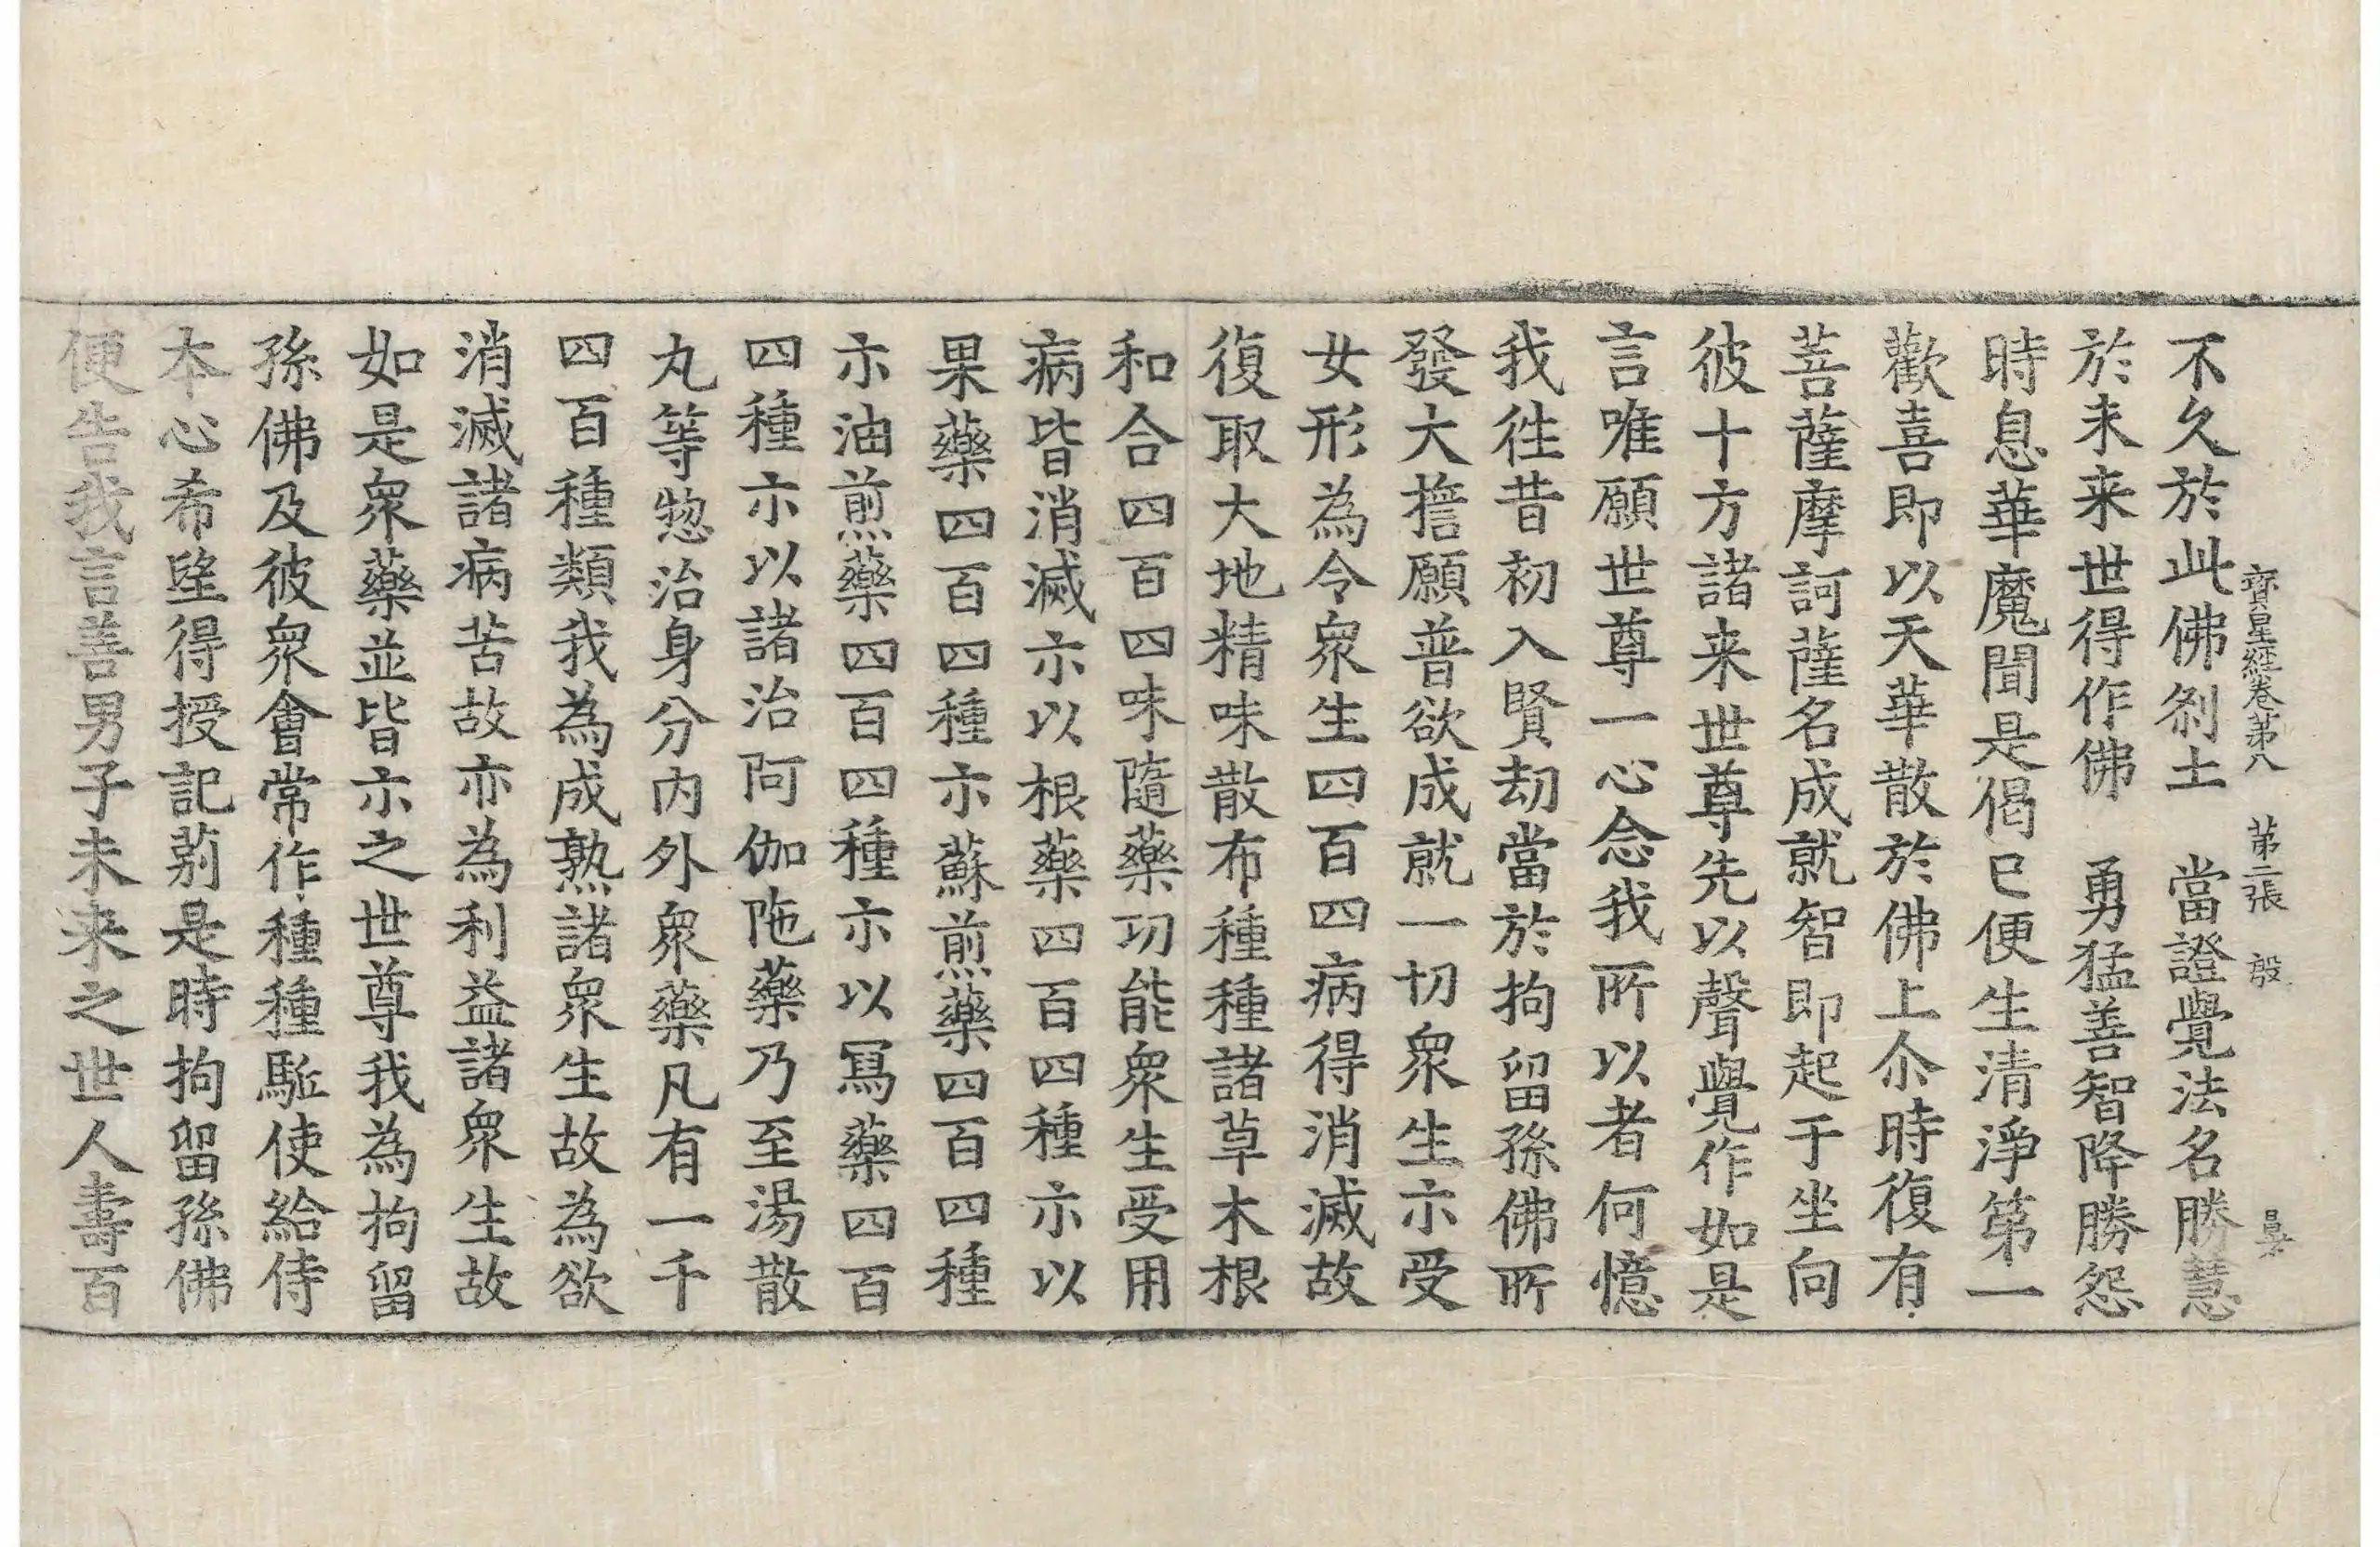 寳星經卷苐八　苐二張　殷
不久於此佛刹土　當證覺法名勝慧
於未来世得作佛　勇猛善智降勝怨
時息華魔聞是偈已便生清淨第一
歡喜即以天華散於佛上尒時復有
菩薩摩訶薩名成就智即起于坐向
彼十方諸来世尊先以聲覺作如是
言唯願世尊一心念我所以者何憶
我徃昔初入賢劫當於拘留孫佛所
發大擔願普欲成就一切衆生示受
女形為令衆生四百四病得消滅故
復取大地精味散布種種諸草木根
和合四百四味隨藥功能衆生受用
病皆消滅示以根藥四百四種示以
果藥四百四種示蘇煎藥四百四種
示油煎藥四百四種示以冩藥四百
四種示以諸治阿伽陁藥乃至湯散
丸等惣治身分内外衆藥凡有一千
四百種類我為成熟諸衆生故為欲
消滅諸病苦故亦為利益諸衆生故
如是衆藥並皆示之世尊我為拘留
孫佛及彼衆會常作種種駈使給侍
本心希望得授記莂是時拘留孫佛
便告我言善男子未来之世人壽百